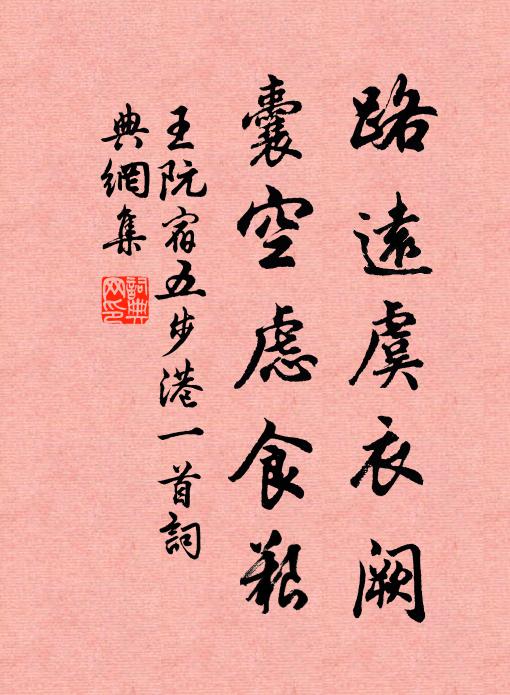 路遠虞衣闕
囊空慮食艱
王阮宿五步港一首詞
典網集
詞典
网印